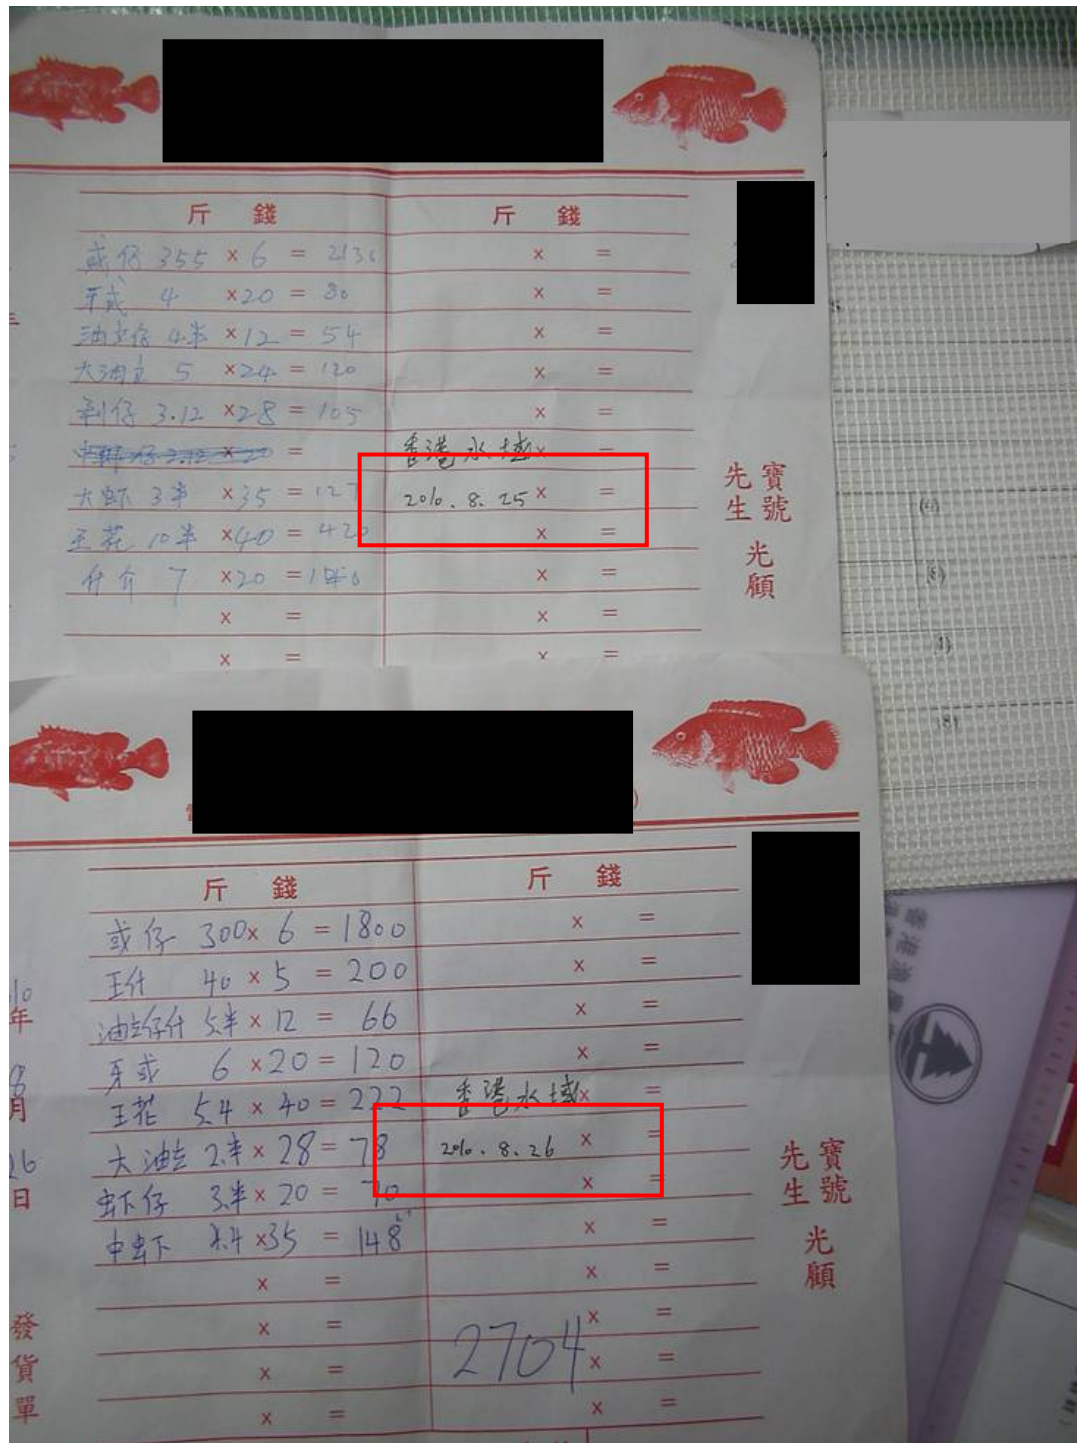 斤 錢
斤 錢
或仔 355 × 6 = 2130
× =
牙或 4 × 20 = 80
× =
油立仔 4半 × 12 = 54
× =
大油立 5 × 24 = 120
× =
剥仔 3.12 × 28 = 105
× =
香港水域 × =
大虾 3半 × 35 = 12
2010.8.25 × =
王花 10半 × 40 = 420
× =
什介 7 × 20 =
× =
× =
× =
× =
× =
寶號
先生
光顧
斤 錢
斤 錢
或仔 300 × 6 = 1800
× =
王什 40 × 5 = 200
× =
油立仔什 5半 × 12 = 66
× =
牙或 6 × 20 = 120
× =
王花 5.4 × 40 = 222
香港水域 × =
大油立 2半 × 28 = 78
2010.8.26 × =
虾仔 3半 × 20 = 70
× =
中虾 4.4 × 35 = 148
× =
× =
× =
× =
× =
× =
2704 × =
× =
× =
10年
8月
26日
發貨單
寶號
先生
光顧